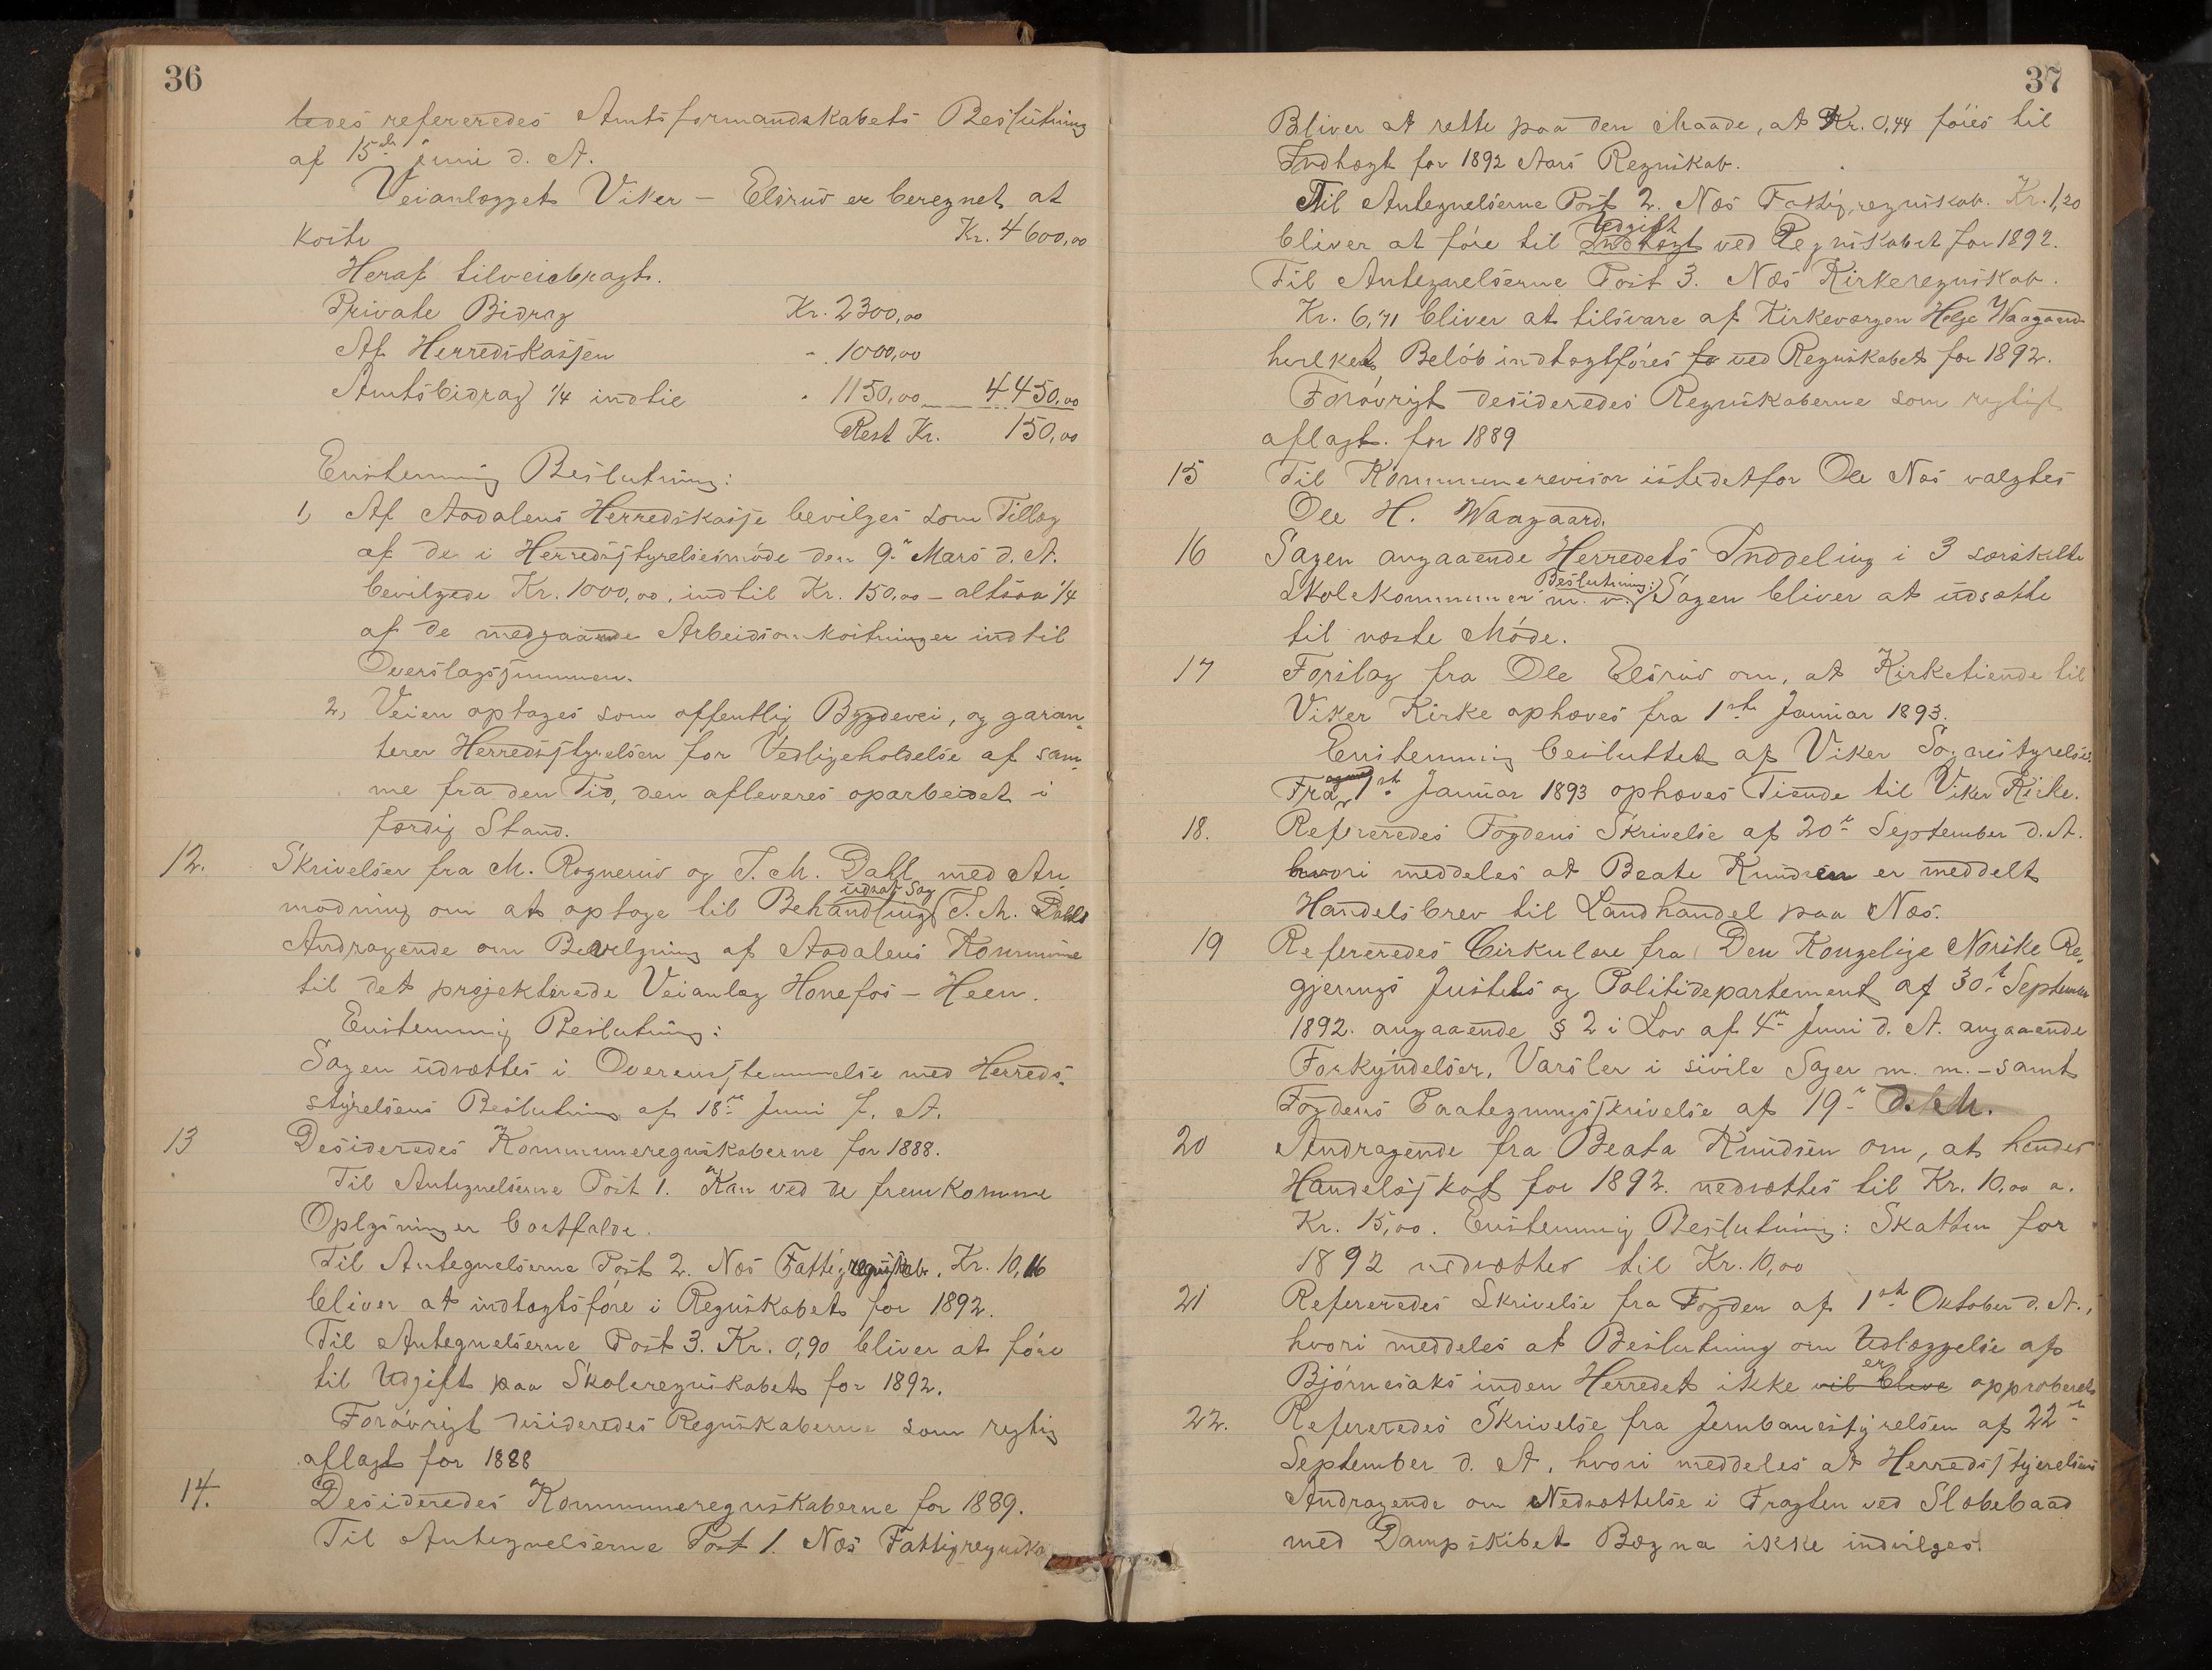 36
tedes refereredes Amtsformandskabets Beslutning
af 15de Juni d. A.
Veianlægget Viker – Elsrud er beregnet at
koste Kr. 4600,00
Heraf tilveiebragt.
Private Bidrag Kr. 2300,00
Af Herredskassen - 1000,00
Amtsbidrag 1/4 indtil - 1150,00 4450,00
Rest Kr. 150,00
Enstemmig Beslutning:
1, Af Aadalens Herredskasse bevilges som Tillæg
af de i Herredsstyrelsesmøde den 9de Mars d. A.
bevilgede Kr. 1000,00, indtil Kr. 150,00 – altsaa 1/4
af de medgaaende Arbeidsomkostninger indtil
Overslagssummen.
2, Veien optages som offentlig Bygdevei, og garan-
terer Herredsstyrelsen for Vedligeholdelse af sam-
me fra den Tid, den afleveres oparbeidet i
færdig Stand.
12. Skrivelser fra M. Rognerud og T. M. Dahl med An-
modning om at optage til Behandling udsat Sag T. M. Dahls
Andragende om Bevilgning af Aadalens Kommune
til det projekterede Veianlæg Hønefos – Heen.
Enstemmig Beslutning:
Sagen udsættes i Overensstemmelse med Herreds-
styrelsens Beslutning af 18de Juni f. A.
13 Desideredes Kommuneregnskaberne for 1888.
Til Antegnelserne Post 1. Kan ved de fremkomne
Oplysninger bortfalde.
Til Antegnelserne Post 2. Næs Fattigregnskab. Kr. 10,16
bliver at indtægtsføre i Regnskabet for 1892.
Til Antegnelserne Post 3. Kr. 0,90 bliver at føre
til Udgift paa Skoleregnskabet for 1892.
Forøvrigt desideredes Regnskaberne som rigtig
aflagt for 1888
14. Desideredes Kommuneregnskaberne for 1889.
Til Antegnelserne Post 1. Næs Fattigregnska
37
Bliver at rette paa den Maade, at Kr. 0,44 føies til
Indtægt for 1892 Aars Regnskab.
Til Antegnelserne Post 2. Næs Fattigregnskab. Kr. 1,20
bliver at føre til Indtægt Udgift ved Regnskabet for 1892.
Til Antegnelserne Post 3. Næs Kirkeregnskab.
Kr. 6,71 bliver at tilsvare af Kirkeværgen Helge Waagaard
hvilket Beløb indtægtføres fo ved Regnskabet for 1892.
Forøvrigt desideredes Regnskaberne som rigtigt
aflagt. for 1889
15 Til Kommunerevisor istedetfor Ole Næs valgtes
Ole H. Waagaard.
16 Sagen angaaende Herredets Inddeling i 3 særskilte
Skolekommuner m. v. Beslutning: Sagen bliver at udsætte
til næste Møde.
17 Forslag fra Ole Elsrud om, at Kirketiende til
Viker Kirke ophæves fra 1ste Januar 1893.
Enstemmig besluttet af Viker Sognestyrelse.
Fra 1ste Januar 1893 ophæves Tiende til Viker Kirke.
18. Refereredes Fogdens Skrivelse af 20de September d. A.
hvori meddeles at Beate Knudsen er meddelt
Handelsbrev til Landhandel paa Næs.
19 Refereredes Cirkulære fra Den Kongelige Norske Re-
gjerings Justits og Politidepartement af 30te September
1892. angaaende § 2 i Lov af 4de Juni d. A. angaaende
Forkyndelser, Varsler i sivile Sager m. m. – samt
Fogdens Paategningsskrivelse af 19de d. M.
20 Andragende fra Beata Knudsen om, at hendes
Handelsskat for 1892 nedsættes til Kr. 10,00 a.
Kr. 15,00. Enstemmig Beslutning: Skatten for
1892 nedsættes til Kr. 10,00
21 Refereredes Skrivelse fra Fogden af 1ste Oktober d. A.,
hvori meddeles at Beslutning om Udlæggelse af
Bjørnesaks inden Herredet ikke vil blive er approberet
22. Refereredes Skrivelse fra Jernbanestyrelsen af 22de
September d. A, hvori meddeles at Herredsstyrelsens
Andragende om Nedsættelse i Fragten ved Slæbebaad
med Dampskibet Bægna ikke indvilges